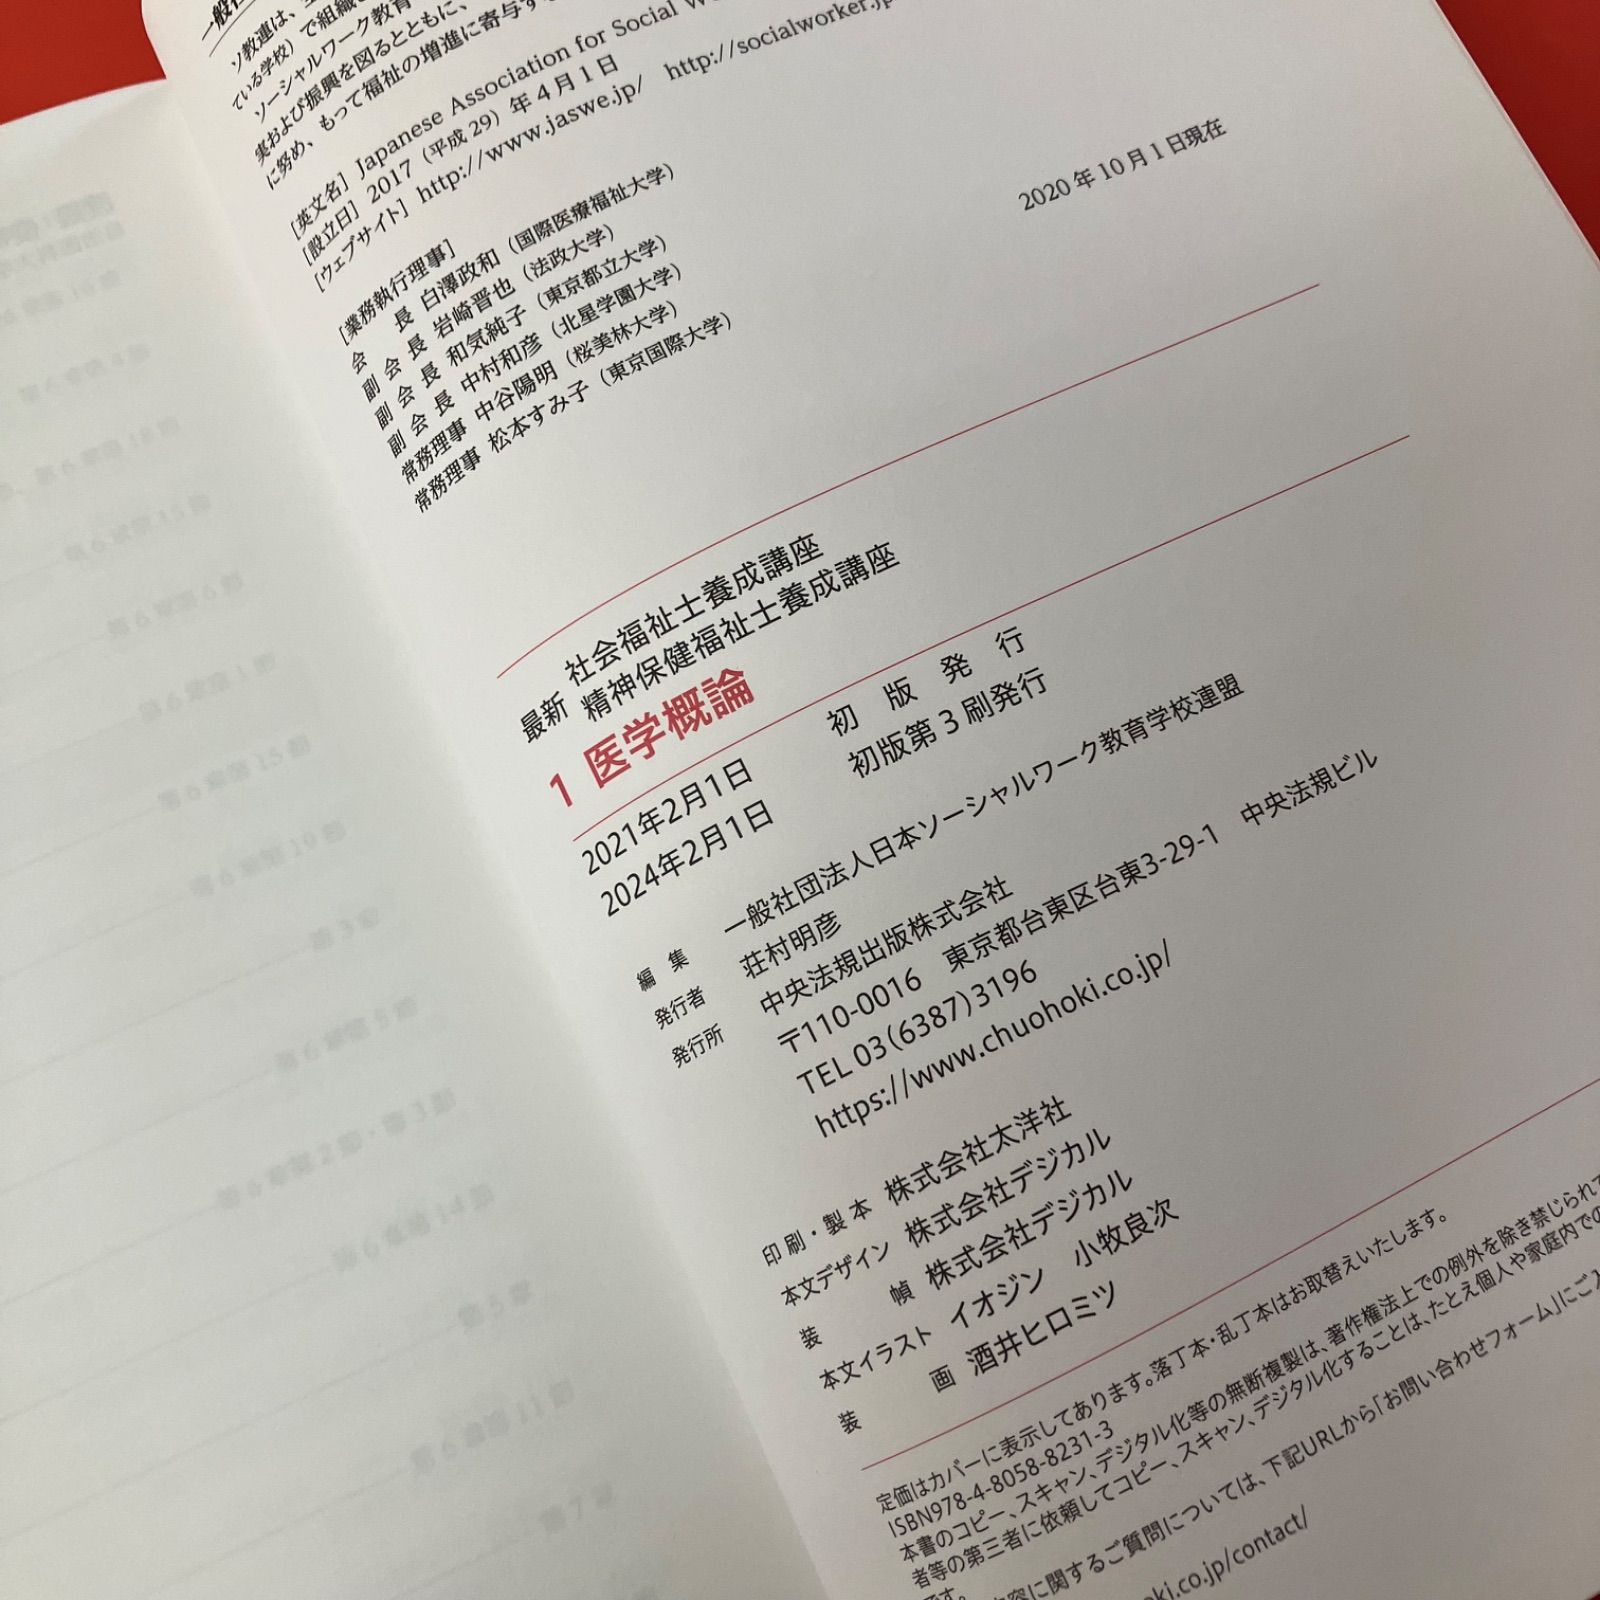 一般社
ソ教連は、
ている学校）で組織さ
ソーシャルワーク教育
実および振興を図るとともに、
に努め、もって福祉の増進に寄与す
[英文名] Japanese Association for Social W
[設立日] 2017（平成 29）年 4 月 1 日
[ウェブサイト] http://www.jaswe.jp/ http://socialworker.jp
2020 年 10 月 1 日現在
[業務執行理事]
会 長 白澤政和（国際医療福祉大学）
副 会 長 岩崎晋也（法政大学）
副 会 長 和気純子（東京都立大学）
副 会 長 中村和彦（北星学園大学）
常務理事 中谷陽明（桜美林大学）
常務理事 松本すみ子（東京国際大学）
最新 社会福祉士養成講座
精神保健福祉士養成講座
1 医学概論
2021年2月1日 初 版 発 行
2024年2月1日 初版第 3 刷発行
編 集 一般社団法人日本ソーシャルワーク教育学校連盟
発行者 荘村明彦
発行所 中央法規出版株式会社
〒110-0016 東京都台東区台東3-29-1 中央法規ビル
TEL 03(6387)3196
https://www.chuohoki.co.jp/
印刷・製本 株式会社太洋社
本文デザイン 株式会社デジカル
装 幀 株式会社デジカル
本文イラスト イオジン 小牧良次
装 画 酒井ヒロミツ
定価はカバーに表示してあります。落丁本・乱丁本はお取替えいたします。
ISBN978-4-8058-8231-3
本書のコピー、スキャン、デジタル化等の無断複製は、著作権法上での例外を除き禁じられて
者等の第三者に依頼してコピー、スキャン、デジタル化することは、たとえ個人や家庭内での
です。
内容に関するご質問については、下記URLから「お問い合わせフォーム」にご入
oki.co.jp/contact/